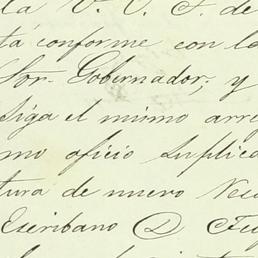 la V. V. F. de
ta conforme con lo
Sor. Gobernador; y
diga el mismo arre
mo oficio suplica
tura de nuevo Vec
Escribano D Fu